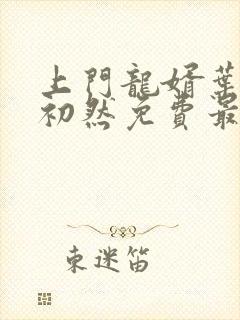 上門龍婿葉
初然免費最
東迷笛